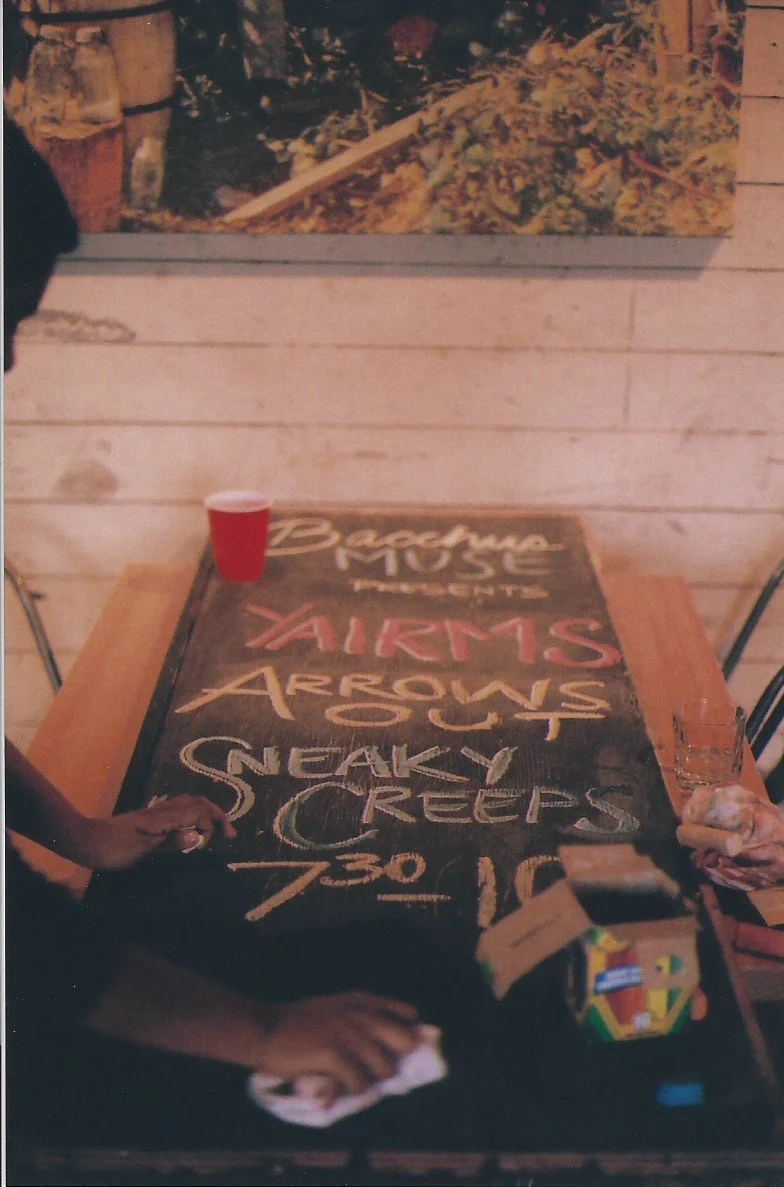 Bacchus
MUSE
PRESENTS
YAIRMS
ARROWS
OUT
SNEAKY
CREEPS
7 30 - 10